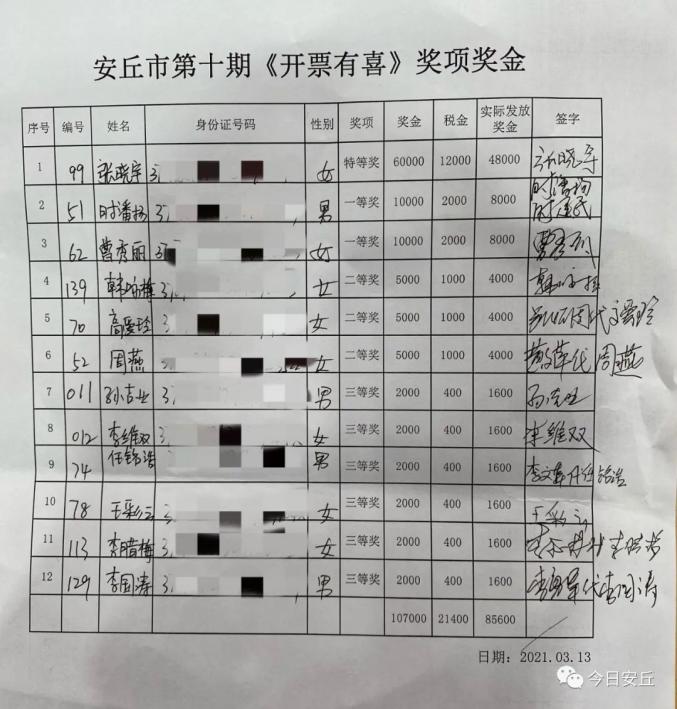 安丘市第十期《开票有喜》奖项奖金
序号 编号 姓名 身份证号码 性别 奖项 奖金 税金 实际发放奖金 签字
1 99 张晓宇 3 女 特等奖 60000 12000 48000 张晓宇
2 51 时潘扬 3 男 一等奖 10000 2000 8000
3 62 曹秀丽 3 女 一等奖 10000 2000 8000
4 139 韩 梅 3 女 二等奖 5000 1000 4000
5 70 高爱玲 3 女 二等奖 5000 1000 4000
6 52 周燕 3 女 二等奖 5000 1000 4000 代周燕
7 011 孙吉业 3 男 三等奖 2000 400 1600
8 012 李维双 3 女 三等奖 2000 400 1600 李维双
9 74 任铭浩 男 三等奖 2000 400 1600
10 78 王彩云 3 女 三等奖 2000 400 1600 王彩云
11 113 李腊梅 3 女 三等奖 2000 400 1600
12 129 李国涛 3 男 三等奖 2000 400 1600 代李国涛
107000 21400 85600
日期：2021.03.13
今日安丘